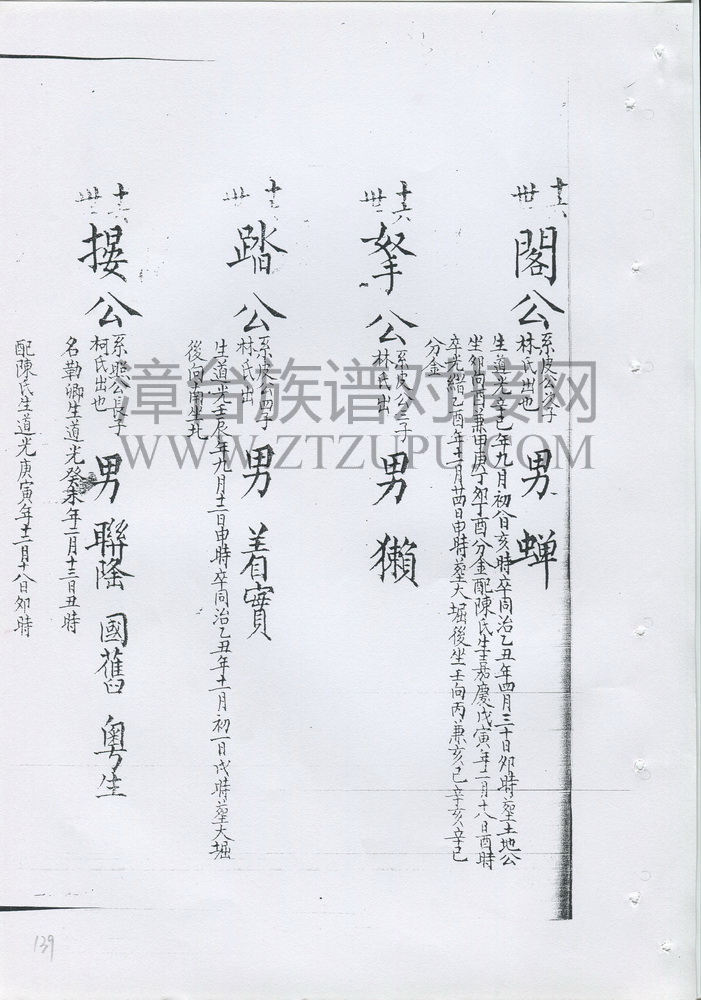 十六世 閣公 系皮公次子 林氏出也 男 蟬
生道光辛巳年九月初八日亥時卒同治乙丑年四月三十日夘時塟土地公
坐夘向酉兼甲庚丁夘丁酉分金配陳氏生嘉慶戊寅年十二月十八日酉時
卒光緒乙酉年十一月廿四日申時塟大堀後坐壬向丙兼亥巳辛亥辛巳
分金
十六世 拏公 系皮公三子 林氏出 男 獺
十六世 踏公 系皮公四子 林氏出 男 着實
生道光壬辰年九月十二日申時卒同治乙丑年十一月初一日戌時塟大堀
後向南坐北
十六世 公 系 公長子 柯氏出也 男 聯隆 國舊 粵生
名勤卿生道光癸未年二月十三日丑時
配陳氏生道光庚寅年十二月十八日夘時
漳台族谱对接网
WWW.ZTZUPU.COM
139